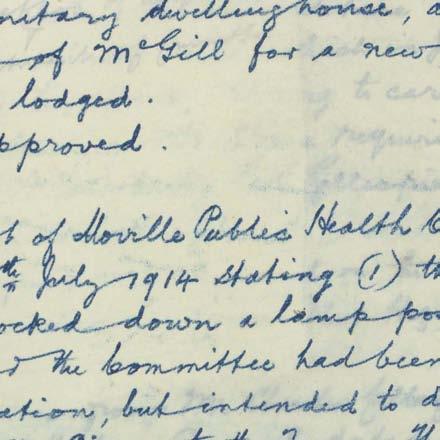 nitary dwellinghouse,
of McGill for a new
lodged.
pproved.
t of Moville Public Health C
th July 1914 stating (1) th
ocked down a lamp pos
the Committee had been
ation, but intended to d